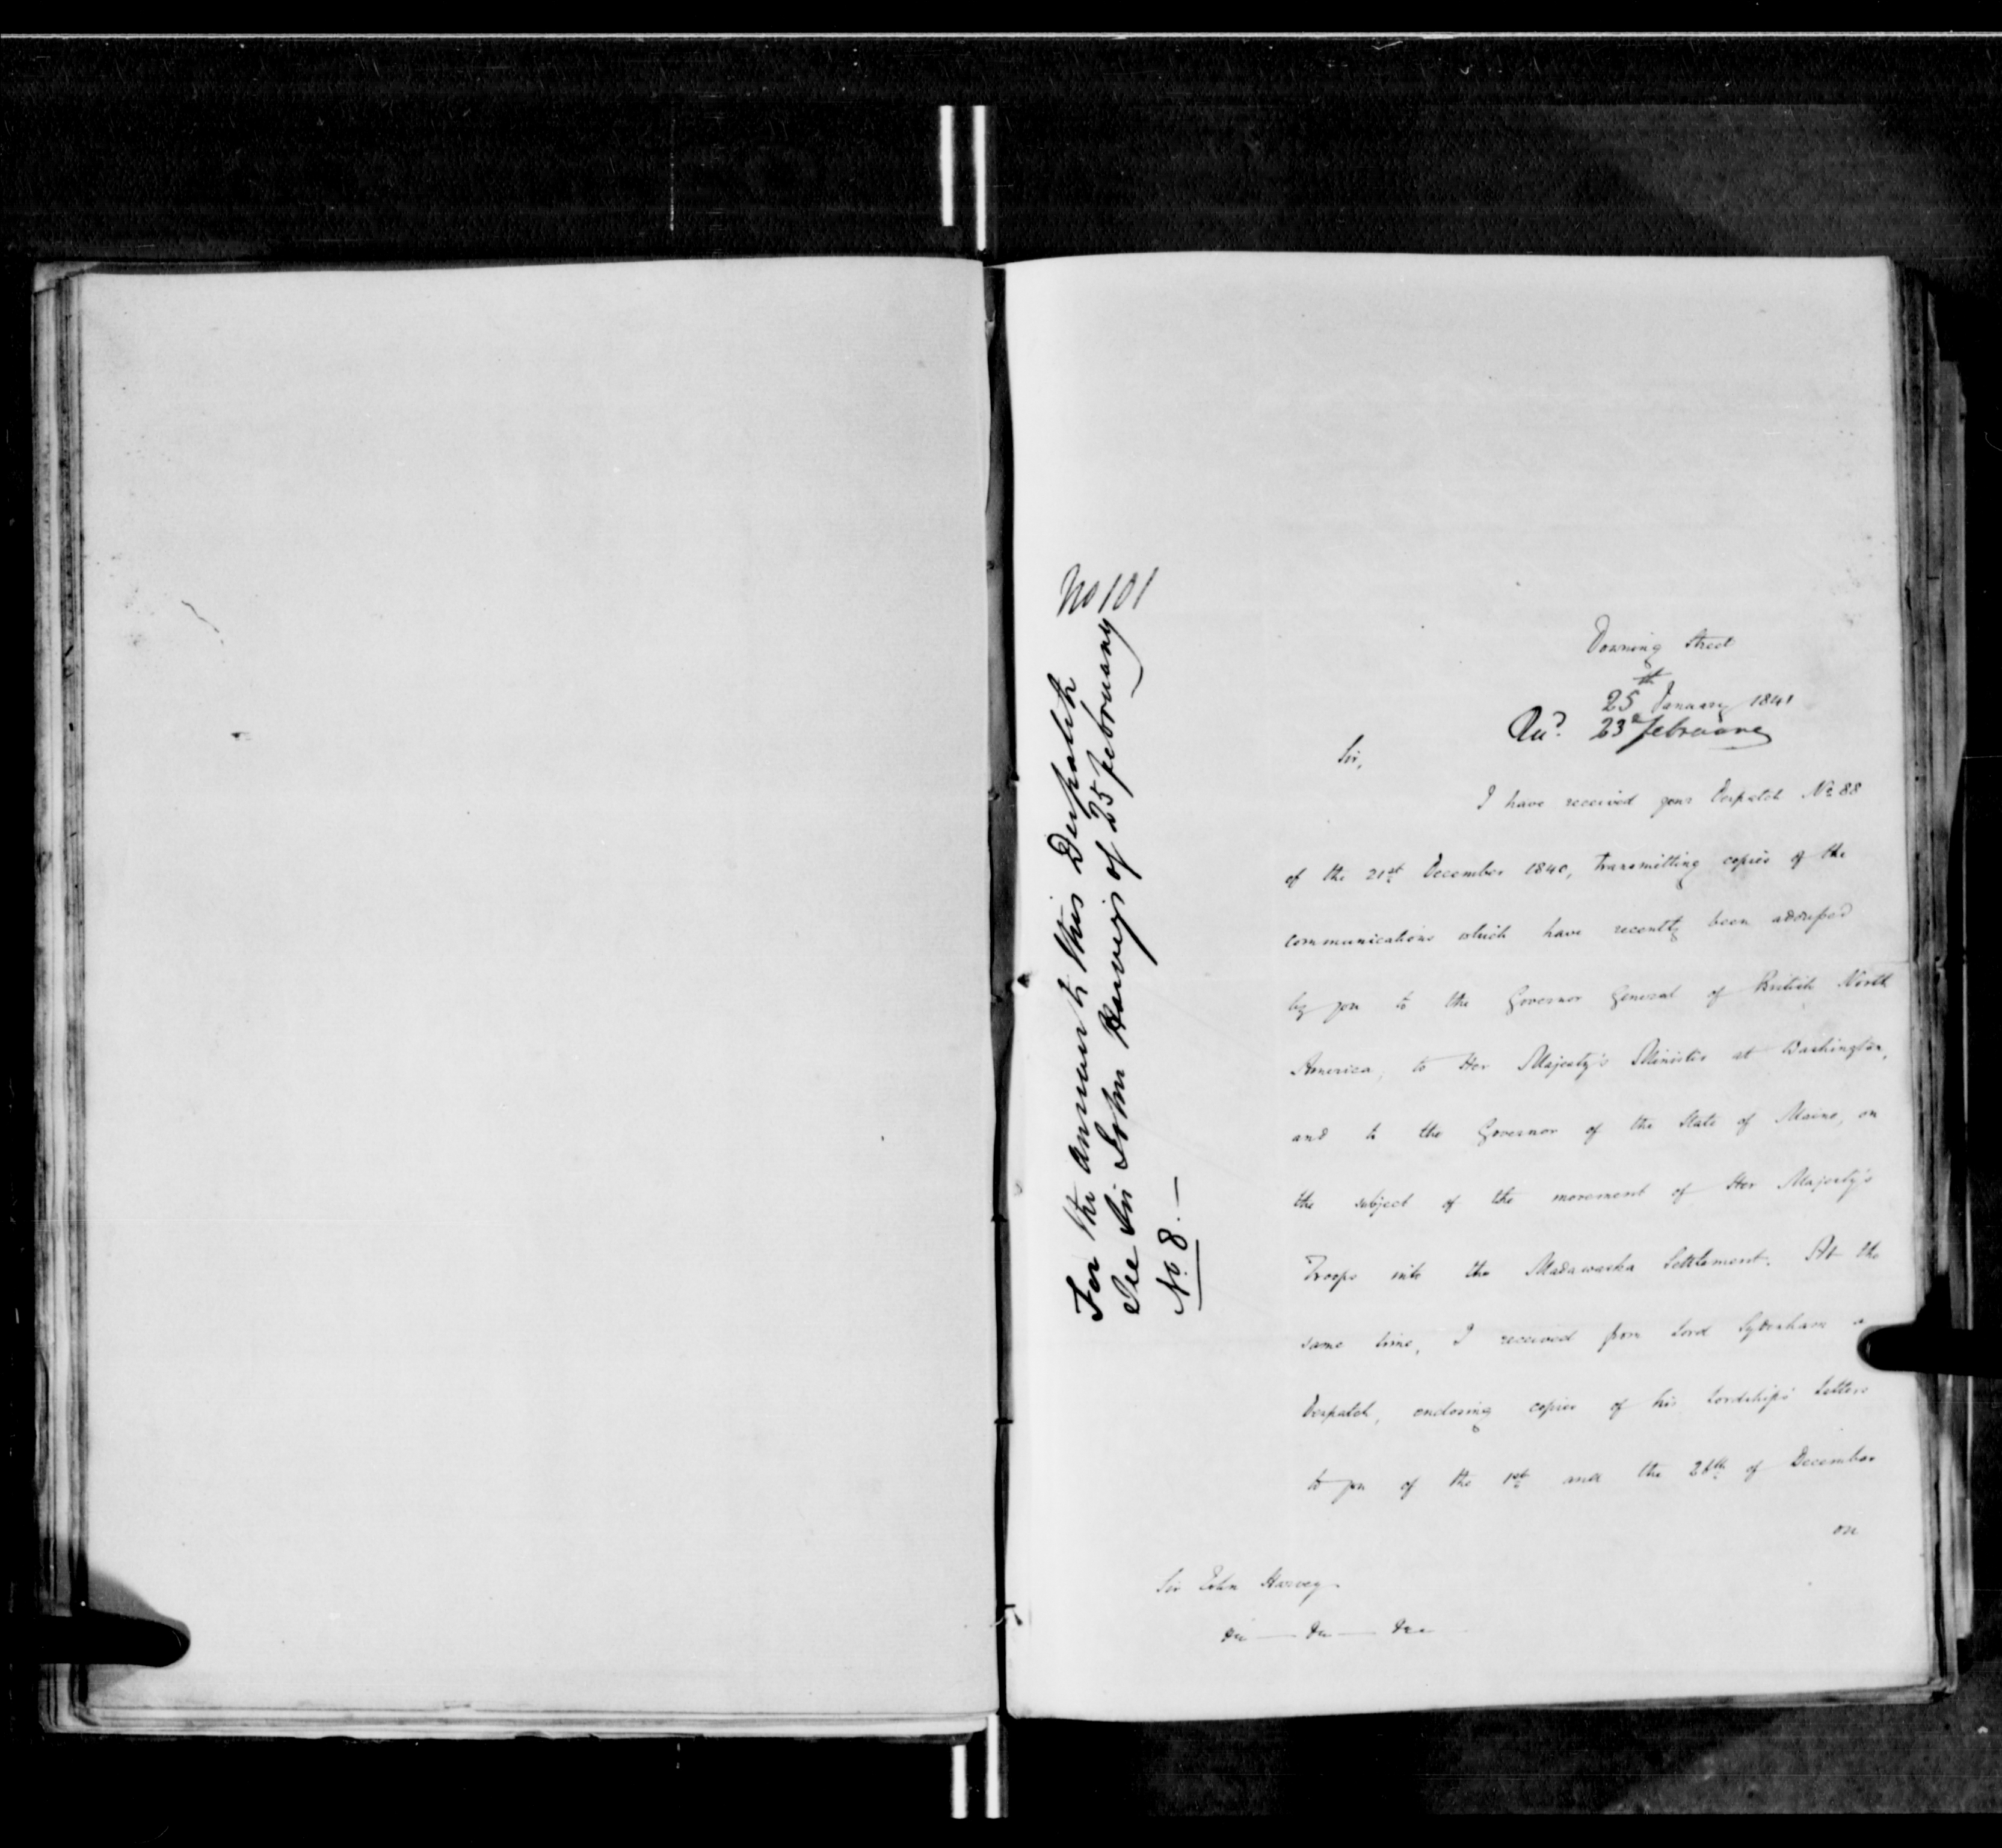 No 101
Downing Street
25th January 1841
Recd. 23d February
Sir,
I have received your Despatch No. 88
of the 21st December 1840, transmitting copies of the
communications which have recently been addressed
by you to the Governor General of British North
America, to Her Majesty's Minister at Washington,
and to the Governor of the State of Maine, on
the subject of the movement of Her Majesty's
Troops into the Madawaska Settlement. At the
same time, I received from Lord Sydenham a
Despatch, enclosing copies of his Lordship's Letters
to you of the 1st and the 28th of December
on
Sir John Harvey
&c — &c — &c
For the answer to this Despatch
See Sir John Harvey's of 25 february
No. 8. —